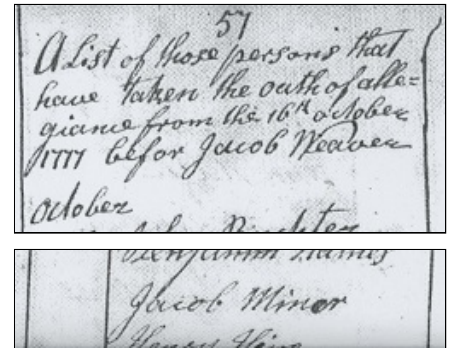 57
A List of those persons that
have taken the outh of alle=
giance from the 16th october
1777 befor Jacob Weaver
october
Benjamin
Jacob Minor
Henry